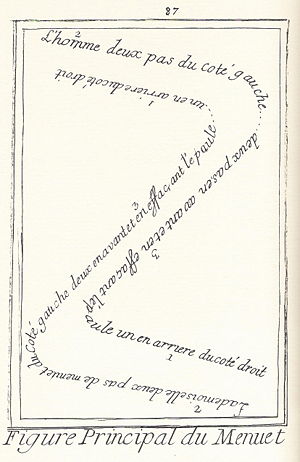 37
L'homme deux pas du coté gauche.... deux pas en avant et en effaçant l'epaule un en arriere du coté droit
2
3
1
Lademoiselle deux pas de menuet du coté gauche deux en avant et en effaçant l'epaule... un en arriere du coté droit
2
3
1
Figure Principal du Menuet